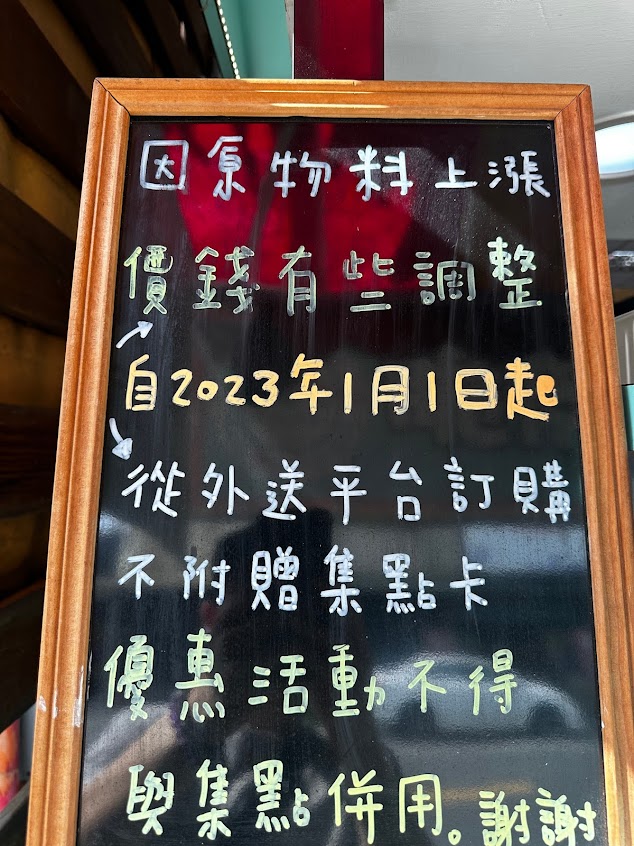 因原物料上漲
價錢有些調整
自2023年1月1日起
從外送平台訂購
不附贈集點卡
優惠活動不得
與集點併用。謝謝